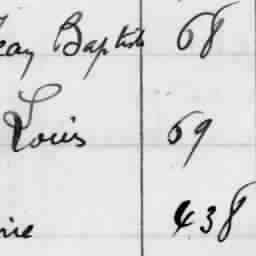 Jean Baptiste 68
Louis 69
nie 438